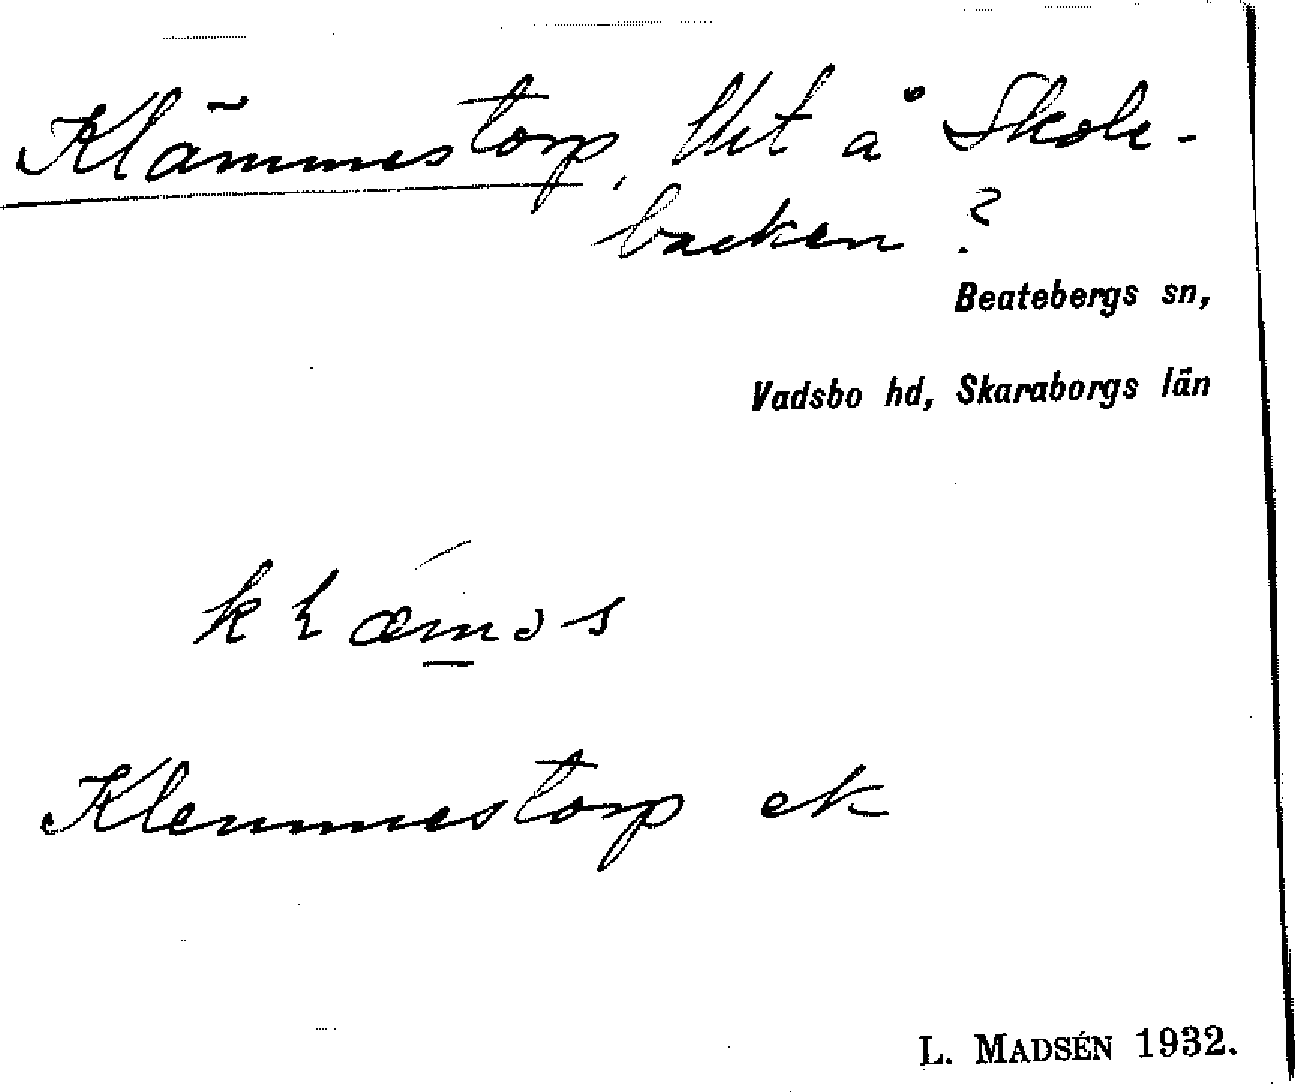 Klämmestorp, lht å Skole-
backen ?
Beatebergs sn,
Vadsbo hd, Skaraborgs län
Klemmestorp ek
L. MADSÉN 1932.